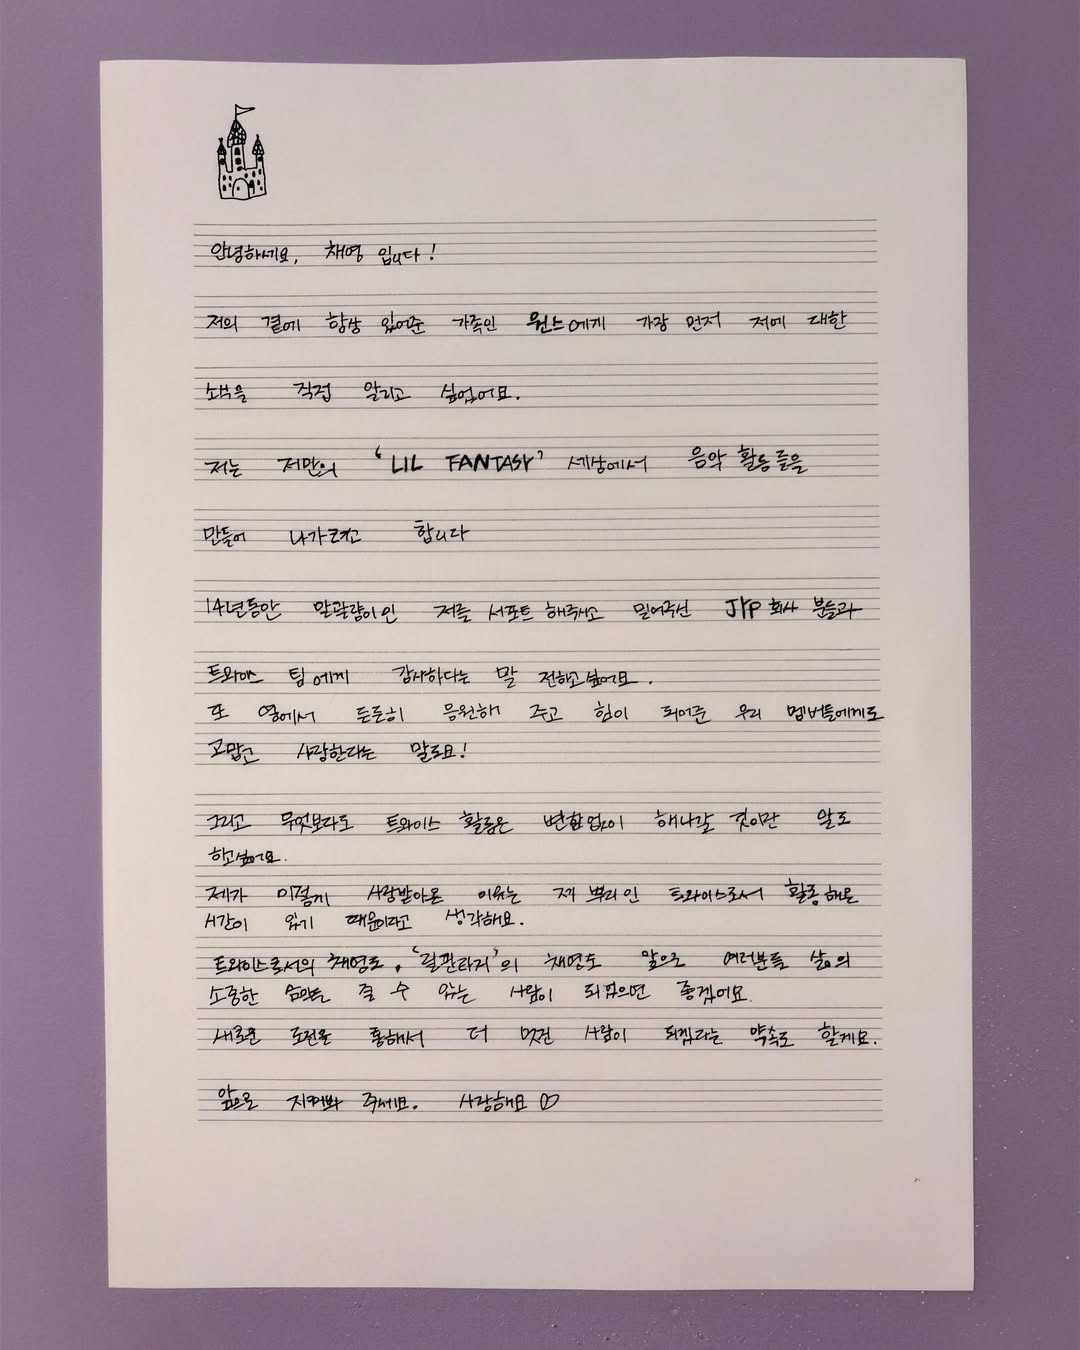 안녕하세요, 채영 입니다!
저의 곁에 항상 있어준 가족인 원스에게 가장 먼저 저에 대한
소식을 직접 알리고 싶었어요.
저는 저만의 'LIL FANTASY' 세상에서 음악 활동들을
만들어 나가려고 합니다
14년동안 말괄량이인 저를 서포트 해주시고 밀어주신 JYP 회사 분들과
트와이스 팀에게 감사하다는 말 전하고싶어요.
또 옆에서 든든히 응원해 주고 힘이 되어준 우리 멤버들에게도
고맙고 사랑한다는 말도요!
그리고 무엇보다도 트와이스 활동은 변함없이 해나갈 것이란 말도
하고싶어요.
제가 이렇게 사랑받아온 이유는 제 뿌리인 트와이스로서 활동해온
시간이 있기 때문이라고 생각해요.
트와이스로서의 채영도, '릴판타지'의 채영도 앞으로 여러분들 삶의
소중한 순간을 줄 수 있는 사람이 되었으면 좋겠어요.
새로운 도전을 통해서 더 멋진 사람이 되겠다는 약속도 할게요.
앞으로 지켜봐 주세요. 사랑해요 ♡